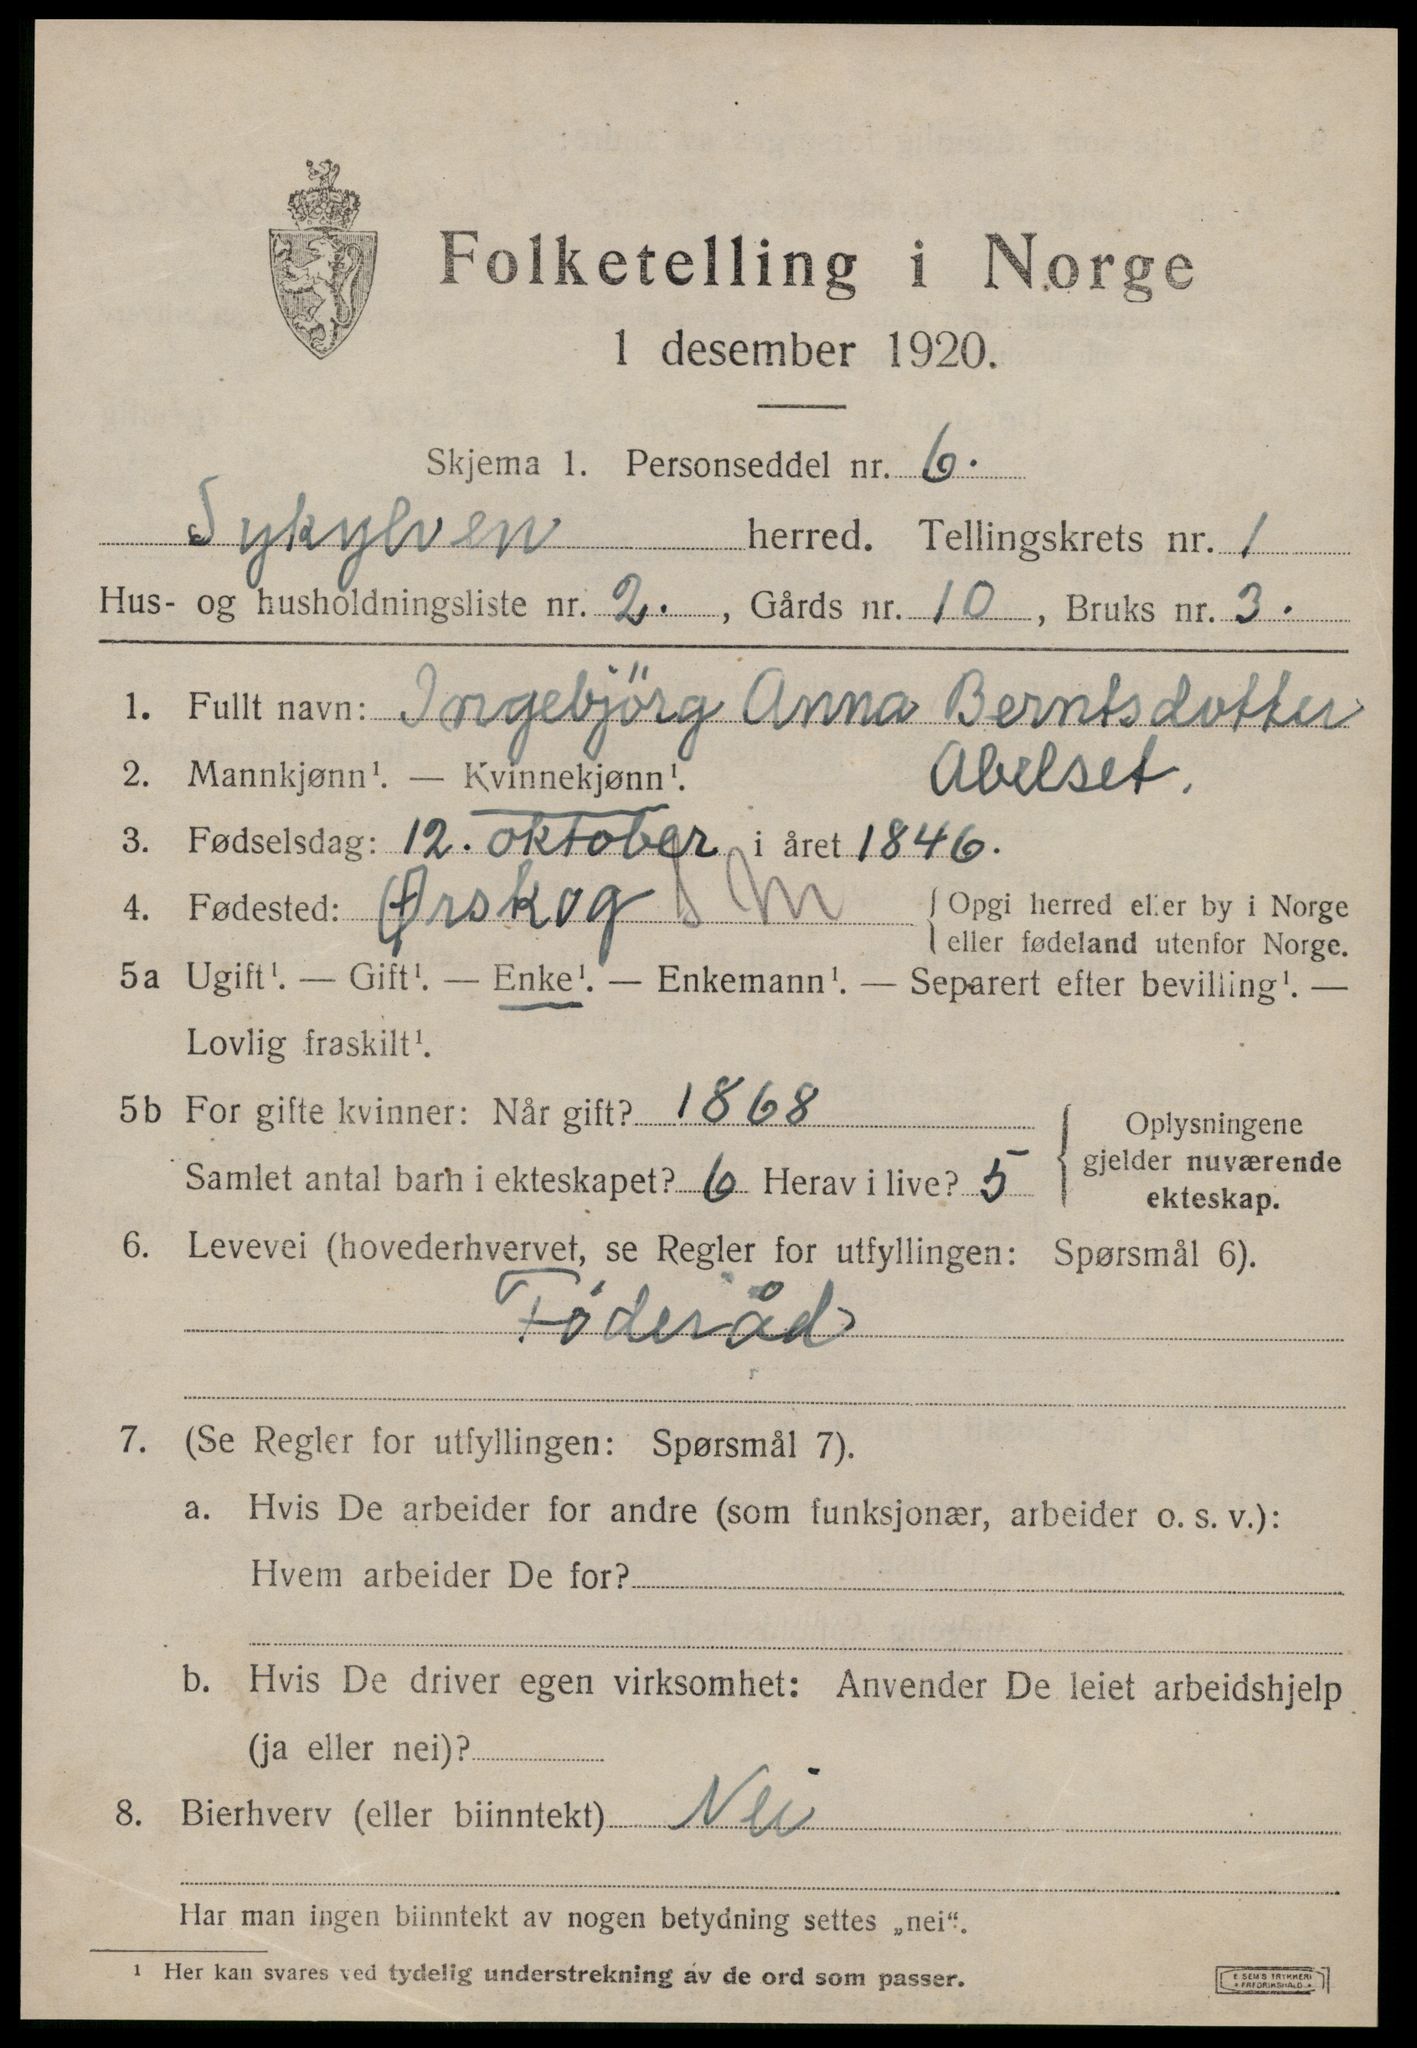 Folketelling i Norge
1 desember 1920.
Skjema 1. Personseddel nr. 6.
Sykylven herred. Tellingskrets nr. 1
Hus- og husholdningsliste nr. 2. , Gårds nr. 10 , Bruks nr. 3.
1. Fullt navn: Ingebjörg Anna Berntsdotter
Abelset.
2. Mannkjønn¹. — Kvinnekjønn¹.
3. Fødselsdag: 12. oktober i året 1846.
4. Fødested: Ørskog S M { Opgi herred eller by i Norge
eller fødeland utenfor Norge.
5a Ugift¹. — Gift¹. — Enke¹. — Enkemann¹. — Separert efter bevilling¹. —
Lovlig fraskilt¹.
5b For gifte kvinner: Når gift? 1868
Samlet antal barn i ekteskapet? 6 Herav i live? 5
Oplysningene
gjelder nuværende
ekteskap.
6. Levevei (hovederhvervet, se Regler for utfyllingen: Spørsmål 6).
Föderåd
7. (Se Regler for utfyllingen: Spørsmål 7).
a. Hvis De arbeider for andre (som funksjonær, arbeider o. s. v.):
Hvem arbeider De for?
b. Hvis De driver egen virksomhet: Anvender De leiet arbeidshjelp
(ja eller nei)?
8. Bierhverv (eller biinntekt) Nei
Har man ingen biinntekt av nogen betydning settes „nei“.
¹ Her kan svares ved tydelig understrekning av de ord som passer.
E. SEM'S TRYKKERI
FREDRIKSHALD